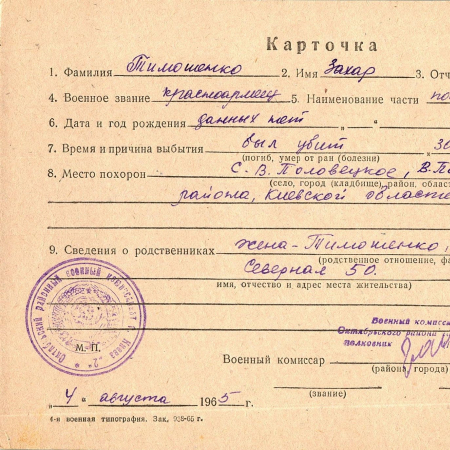 Карточка
1. Фамилия Тимошенко 2. Имя Захар 3. Отч
4. Военное звание красноармеец 5. Наименование части по
6. Дата и год рождения данных нет „ „
7. Время и причина выбытия был убит 30
(погиб, умер от ран (болезни)
8. Место похорон С. В. Половецкое, В. П
(село, город (кладбище), район, област
района, Киевской области
9. Сведения о родственниках жена - Тимошенко
(родственное отношение, фа
Северная 50.
имя, отчество и адрес места жительства)
Военный комисса
Октябрьского района
полковник
М. П.
Военный комиссар
(район, города)
(звание)
„ 4 „ августа 1965 г.
4-я военная типография. Зак. 938-65 г.